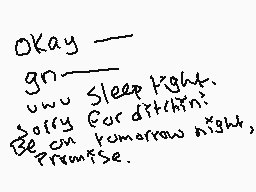 Okay —
gn —
uwu Sleep tight.
Sorry for ditchin!
Be on tomorrow night,
Promise.